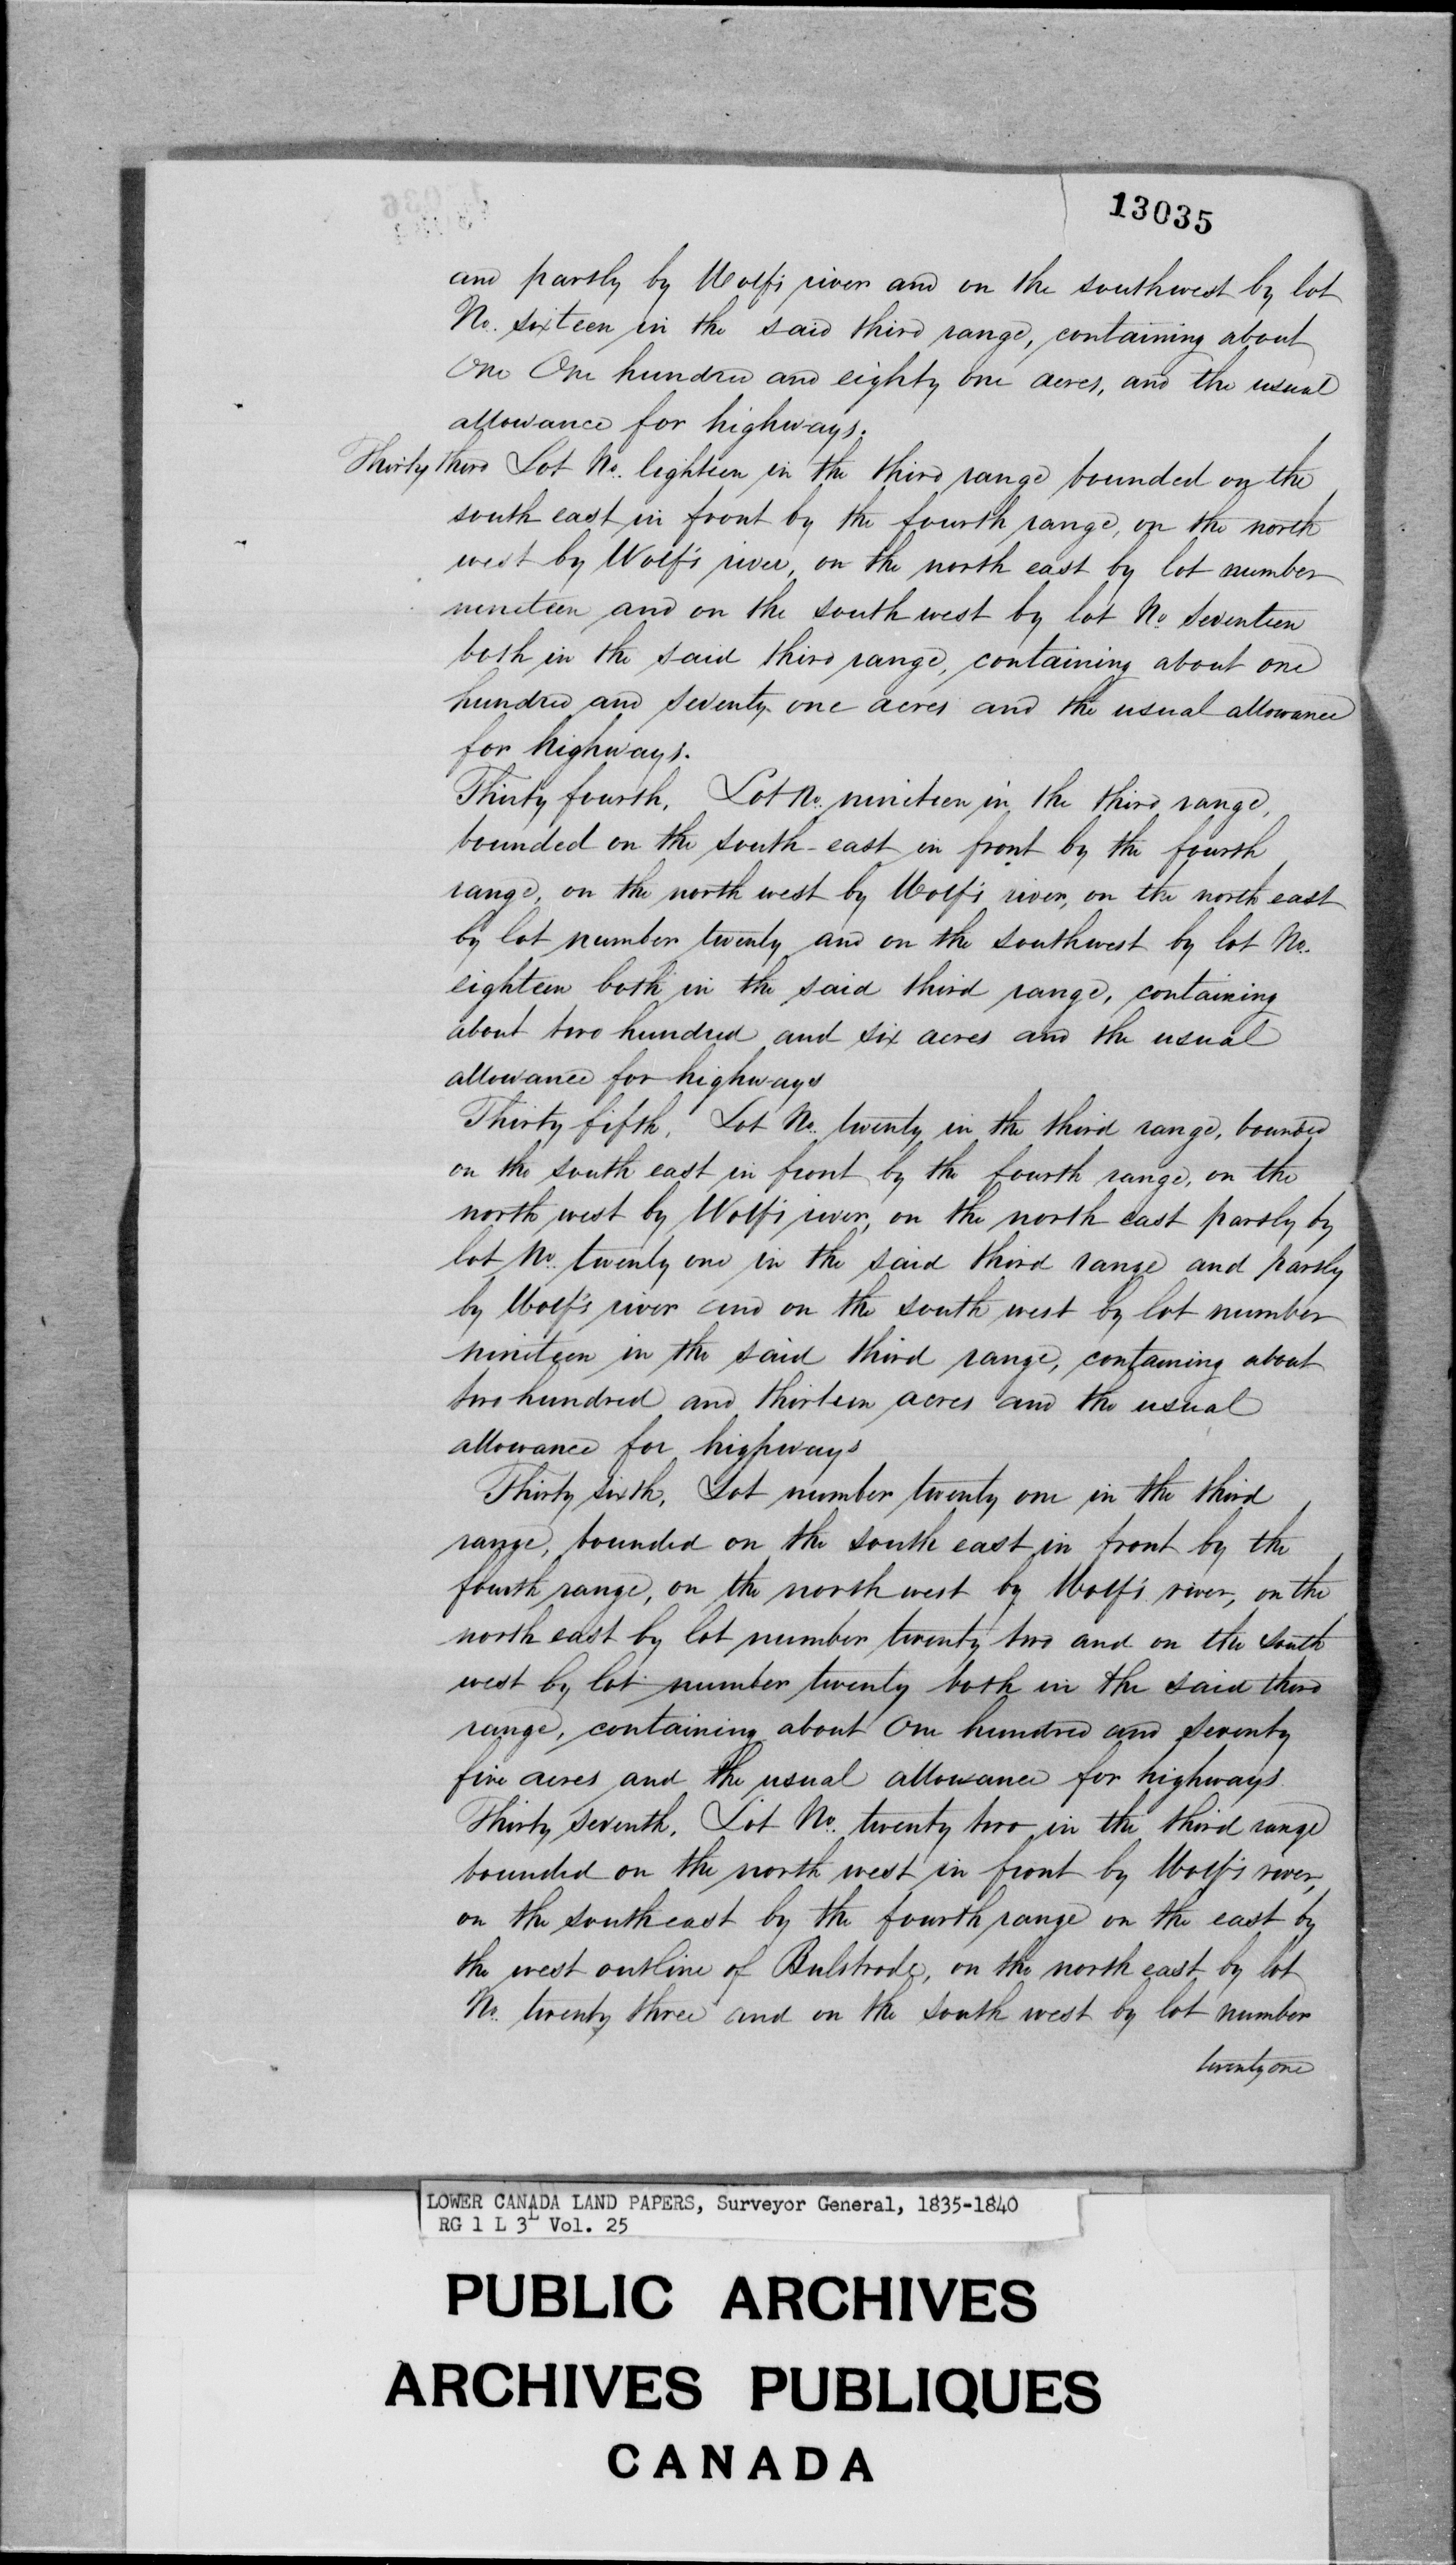 13035
and partly by Wolf's river and on the southwest by lot
No. sixteen in the said third range, containing about
One One hundred and eighty one acres, and the usual
allowance for highways.
Thirty third Lot No. eighteen in the third range bounded on the
south east in front by the fourth range, on the north
west by Wolf's river, on the north east by lot number
nineteen and on the south west by lot No. seventeen
both in the said third range, containing about one
hundred and seventy one acres and the usual allowance
for highways.
Thirty fourth. Lot No. nineteen in the third range,
bounded on the south-east in front by the fourth
range, on the north west by Wolf's river, on the north east
by lot number twenty and on the southwest by lot No.
eighteen both in the said third range, containing
about two hundred and six acres and the usual
allowance for highways
Thirty fifth, Lot No. twenty in the third range, bounded
on the south east in front by the fourth range, on the
north west by Wolf's river, on the north east partly by
lot No. twenty one in the said third range and partly
by Wolf's river and on the south west by lot number
nineteen in the said third range, containing about
two hundred and thirteen acres and the usual
allowance for highways
Thirty sixth, Lot number twenty one in the third
range, bounded on the south east in front by the
fourth range, on the north west by Wolf's river, on the
north east by lot number twenty two and on the south
west by lot number twenty both in the said third
range, containing about One hundred and seventy
five acres and the usual allowance for highways
Thirty seventh. Lot No. twenty two in the third range
bounded on the north west in front by Wolf's river,
on the southeast by the fourth range on the east by
the west outline of Bulstrode, on the north east by lot
No. twenty three and on the south west by lot number
twenty one
LOWER CANADA LAND PAPERS, Surveyor General, 1835-1840
RG 1 L 3L Vol. 25
PUBLIC ARCHIVES
ARCHIVES PUBLIQUES
CANADA